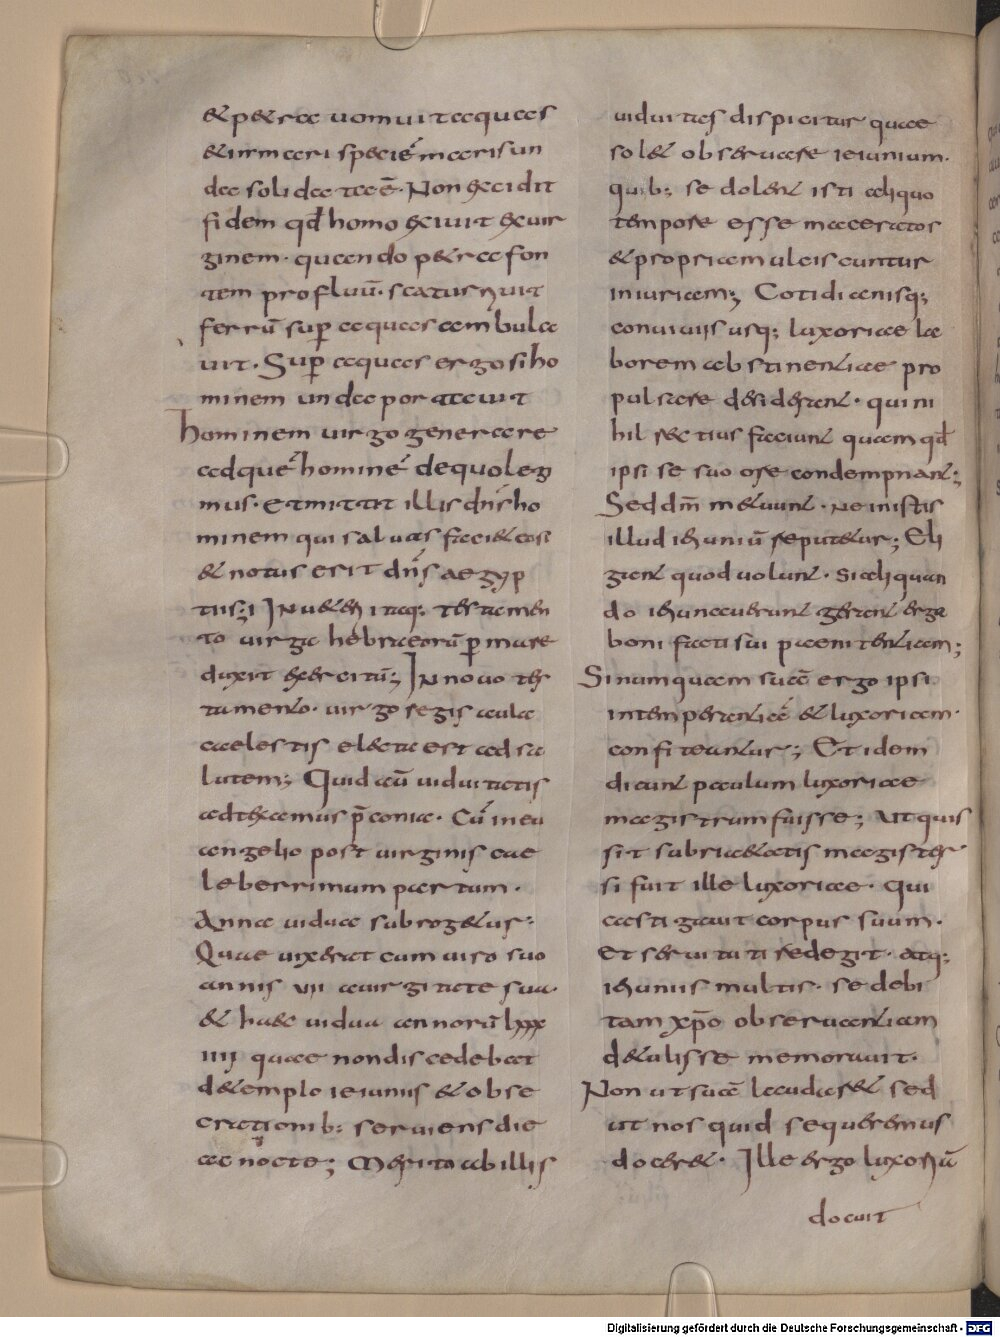 & p&ra uomuit aquas
& in mari speciē maris un
da solidata ē. Non excidit
fidem qd homo exiuit ex uir
ginem. quando p&ra fon
tem profluū. scaturiuit
ferrū sup aquas ambula
uit. Sup aquas ergo si ho
minem unda portauit
hominem uirgo generare
adque homine de quo leg
mus. Et mittit illis dns ho
minem qui saluas faci& eos
& notus erit dns aegyp
tiis; IN ueteri itaq; testamen
to uirga hebraeorū p mare
duxit exercitū; IN nouo tes
tamento. uirgo regis aulae
caelestis electa est ad sa
lutem; Quid aū uiduitatis
adtexamus pconia. Cū in eu
angelio post uirginis cae
leberrimum partum.
Anna uidua subrog&ur;
Quae uixerat cum uiro suo
annis VII a uirginitate sua.
& haec uidua annorū LXXX
IIII quae non discedebat
de templo ieiuniis & obse
crationib; seruiens die
ac nocte; Merito ab illis
uiduitas dispicitur quae
sol& obseruare ieiunium.
quib; se dolent isti aliquo
tempore esse maceratos
& propriam ulciscuntur
iniuriam; Cotidianisq;
conuiuiis usq; luxoriae la
borem abstinentiae pro
pulsare desiderant. qui ni
hil rectius faciunt quam qd
ipsi se suo ore condempnant;
Sed dm m&uunt. ne in istis
illud ieiuniū reput&ur; Eli
gant quod uolunt. si aliquan
do ieiunauerunt gerant ergo
boni facti sui paenitentiam;
Si numquam suā ergo ipsi
intemperantiā & luxoriam.
confiteantur; Et idem
dicunt paulum luxoriae
magistrum fuisse; Ut quis
sit subri&atis magister
si fuit ille luxoriae. Qui
castigauit corpus suum.
Et seruituti redegit. atq;
ieiuniis multis. se debi
tam xpo obseruantiam
d&ulisse memorauit.
Non ut suā laudar& sed
ut nos quid sequeremus
docer&. Ille ergo luxoriā
docuit
Digitalisierung gefördert durch die Deutsche Forschungsgemeinschaft - DFG